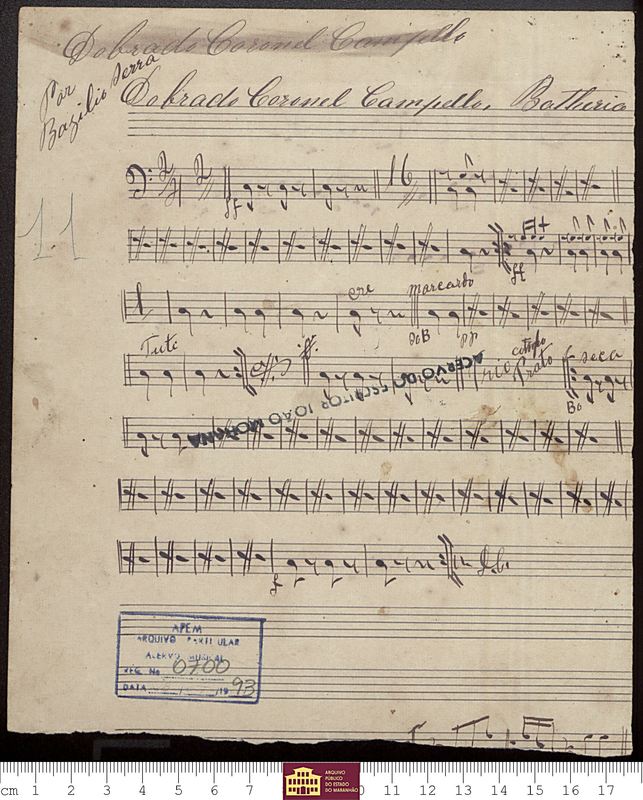 Dobrado Coronel Campello
Por
Bazilio Serra
Dobrado Coronel Campello. Batheria
2/4 2 ff 16
11
ff
cre marcardo
DoB pp
Tuti ff Prato seca
Bo
ACERVO DO ESCRITOR JOÃO MOHANA
f D.C.
APEM
ARQUIVO PARTICULAR
ACERVO MUSICAL
REG. No 0700
DATA /19 93
cm 1 2 3 4 5 6 7 10 11 12 13 14 15 16 17
ARQUIVO
PÚBLICO
DO ESTADO
DO MARANHÃO